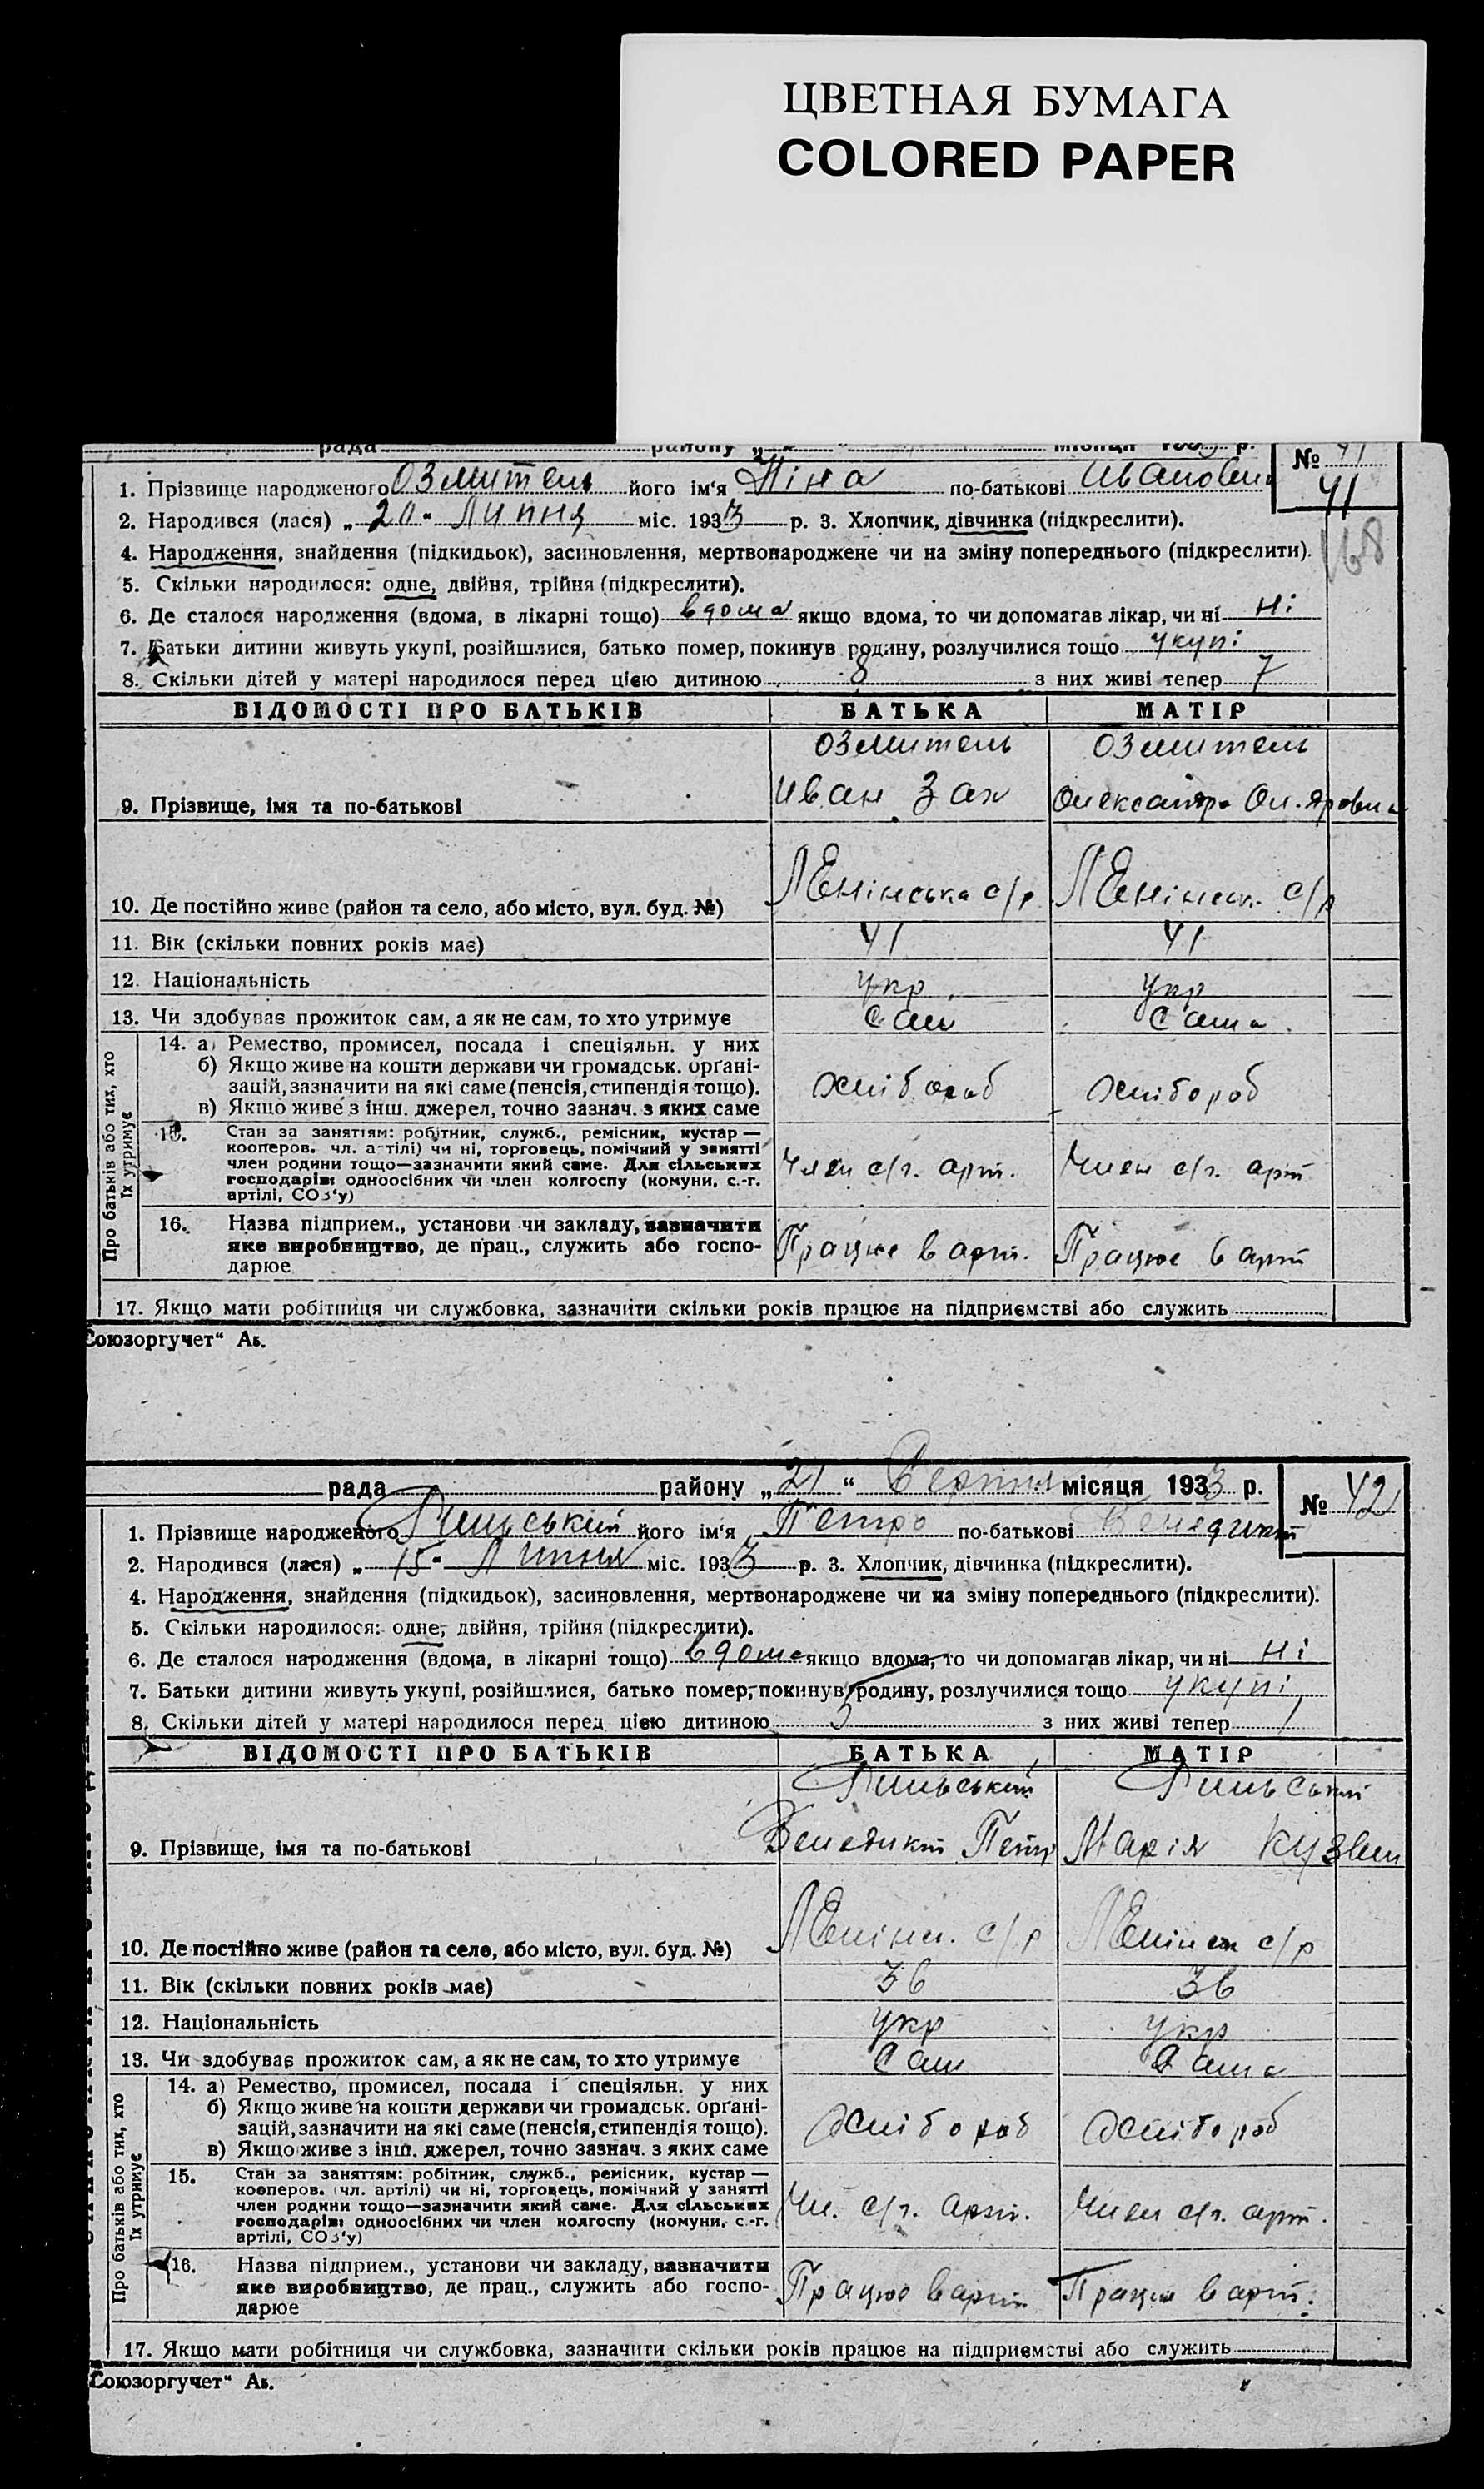 ЦВЕТНАЯ БУМАГА
COLORED PAPER
рада району місяця 1933 р. № 41
41
1. Прізвище народженого Озмитель його ім'я Ніна по-батькові Ивановна
2. Народився (лася) „20" Липня міс. 1933 р. 3. Хлопчик, дівчинка (підкреслити).
168
4. Народження, знайдення (підкидьок), засиновлення, мертвонароджене чи на зміну попереднього (підкреслити).
5. Скільки народилося: одне, двійня, трійня (підкреслити).
6. Де сталося народження (вдома, в лікарні тощо) вдома якщо вдома, то чи допомагав лікар, чи ні Ні
7. Батьки дитини живуть укупі, розійшлися, батько помер, покинув родину, розлучилися тощо укупі
8. Скільки дітей у матері народилося перед цією дитиною 8 з них живі тепер 7
ВІДОМОСТІ ПРО БАТЬКІВ БАТЬКА МАТІР
Озмитель Озмитель
9. Прізвище, імя та по-батькові Иван Зах Олександра
10. Де постійно живе (район та село, або місто, вул. буд. №) Ленінська с/р Ленінськ. с/р
11. Вік (скільки повних років має) 41 41
12. Національність укр укр
13. Чи здобуває прожиток сам, а як не сам, то хто утримує Сам Сама
Про батьків або тих, хто їх утримує
14. а) Ремество, промисел, посада і спеціяльн. у них
б) Якщо живе на кошти держави чи громадськ. орґані-
зацій, зазначити на які саме (пенсія, стипендія тощо). Хлібороб Хлібороб
в) Якщо живе з інш. джерел, точно зазнач. з яких саме
15. Стан за заняттям: робітник, служб., ремісник, кустар —
кооперов. чл. артілі) чи ні, торговець, помічний у занятті
член родини тощо—зазначити який саме. Для сільських Член с/г. арт. Член с/г. арт
господарів: одноосібних чи член колгоспу (комуни, с.-г.
артілі, СОЗ'у)
16. Назва підприєм., установи чи закладу, зазначити
яке виробництво, де прац., служить або госпо- Працює в арт. Працює в арт
дарює
17. Якщо мати робітниця чи службовка, зазначити скільки років працює на підприємстві або служить
Союзоргучет“ Ав.
рада району „21“ Серпня місяця 1933 р. № 42
1. Прізвище народженого його ім'я Петро по-батькові Венедикт
2. Народився (лася) „15" Липня міс. 1933 р. 3. Хлопчик, дівчинка (підкреслити).
4. Народження, знайдення (підкидьок), засиновлення, мертвонароджене чи на зміну попереднього (підкреслити).
5. Скільки народилося: одне, двійня, трійня (підкреслити).
6. Де сталося народження (вдома, в лікарні тощо) вдома якщо вдома, то чи допомагав лікар, чи ні Ні
7. Батьки дитини живуть укупі, розійшлися, батько помер, покинув родину, розлучилися тощо укупі
8. Скільки дітей у матері народилося перед цією дитиною 5 з них живі тепер 1
ВІДОМОСТІ ПРО БАТЬКІВ БАТЬКА МАТІР
9. Прізвище, імя та по-батькові Венедикт Петр Марія
10. Де постійно живе (район та село, або місто, вул. буд. №) Ленінс. с/р Ленінськ с/р
11. Вік (скільки повних років має) 36 36
12. Національність укр укр
13. Чи здобуває прожиток сам, а як не сам, то хто утримує Сам Сама
Про батьків або тих, хто їх утримує
14. а) Ремество, промисел, посада і спеціяльн. у них
б) Якщо живе на кошти держави чи громадськ. орґані-
зацій, зазначити на які саме (пенсія, стипендія тощо). Хлібороб Хлібороб
в) Якщо живе з інш. джерел, точно зазнач. з яких саме
15. Стан за заняттям: робітник, служб., ремісник, кустар —
кооперов. (чл. артілі) чи ні, торговець, помічний у занятті
член родини тощо—зазначити який саме. Для сільських Чл. с/г. арт. Член с/г. арт.
господарів: одноосібних чи член колгоспу (комуни, с.-г.
артілі, СОЗ'у)
16. Назва підприєм., установи чи закладу, зазначити
яке виробництво, де прац., служить або госпо- Працює в арт Працює в арт.
дарює
17. Якщо мати робітниця чи службовка, зазначити скільки років працює на підприємстві або служить
Союзоргучет“ Ав.